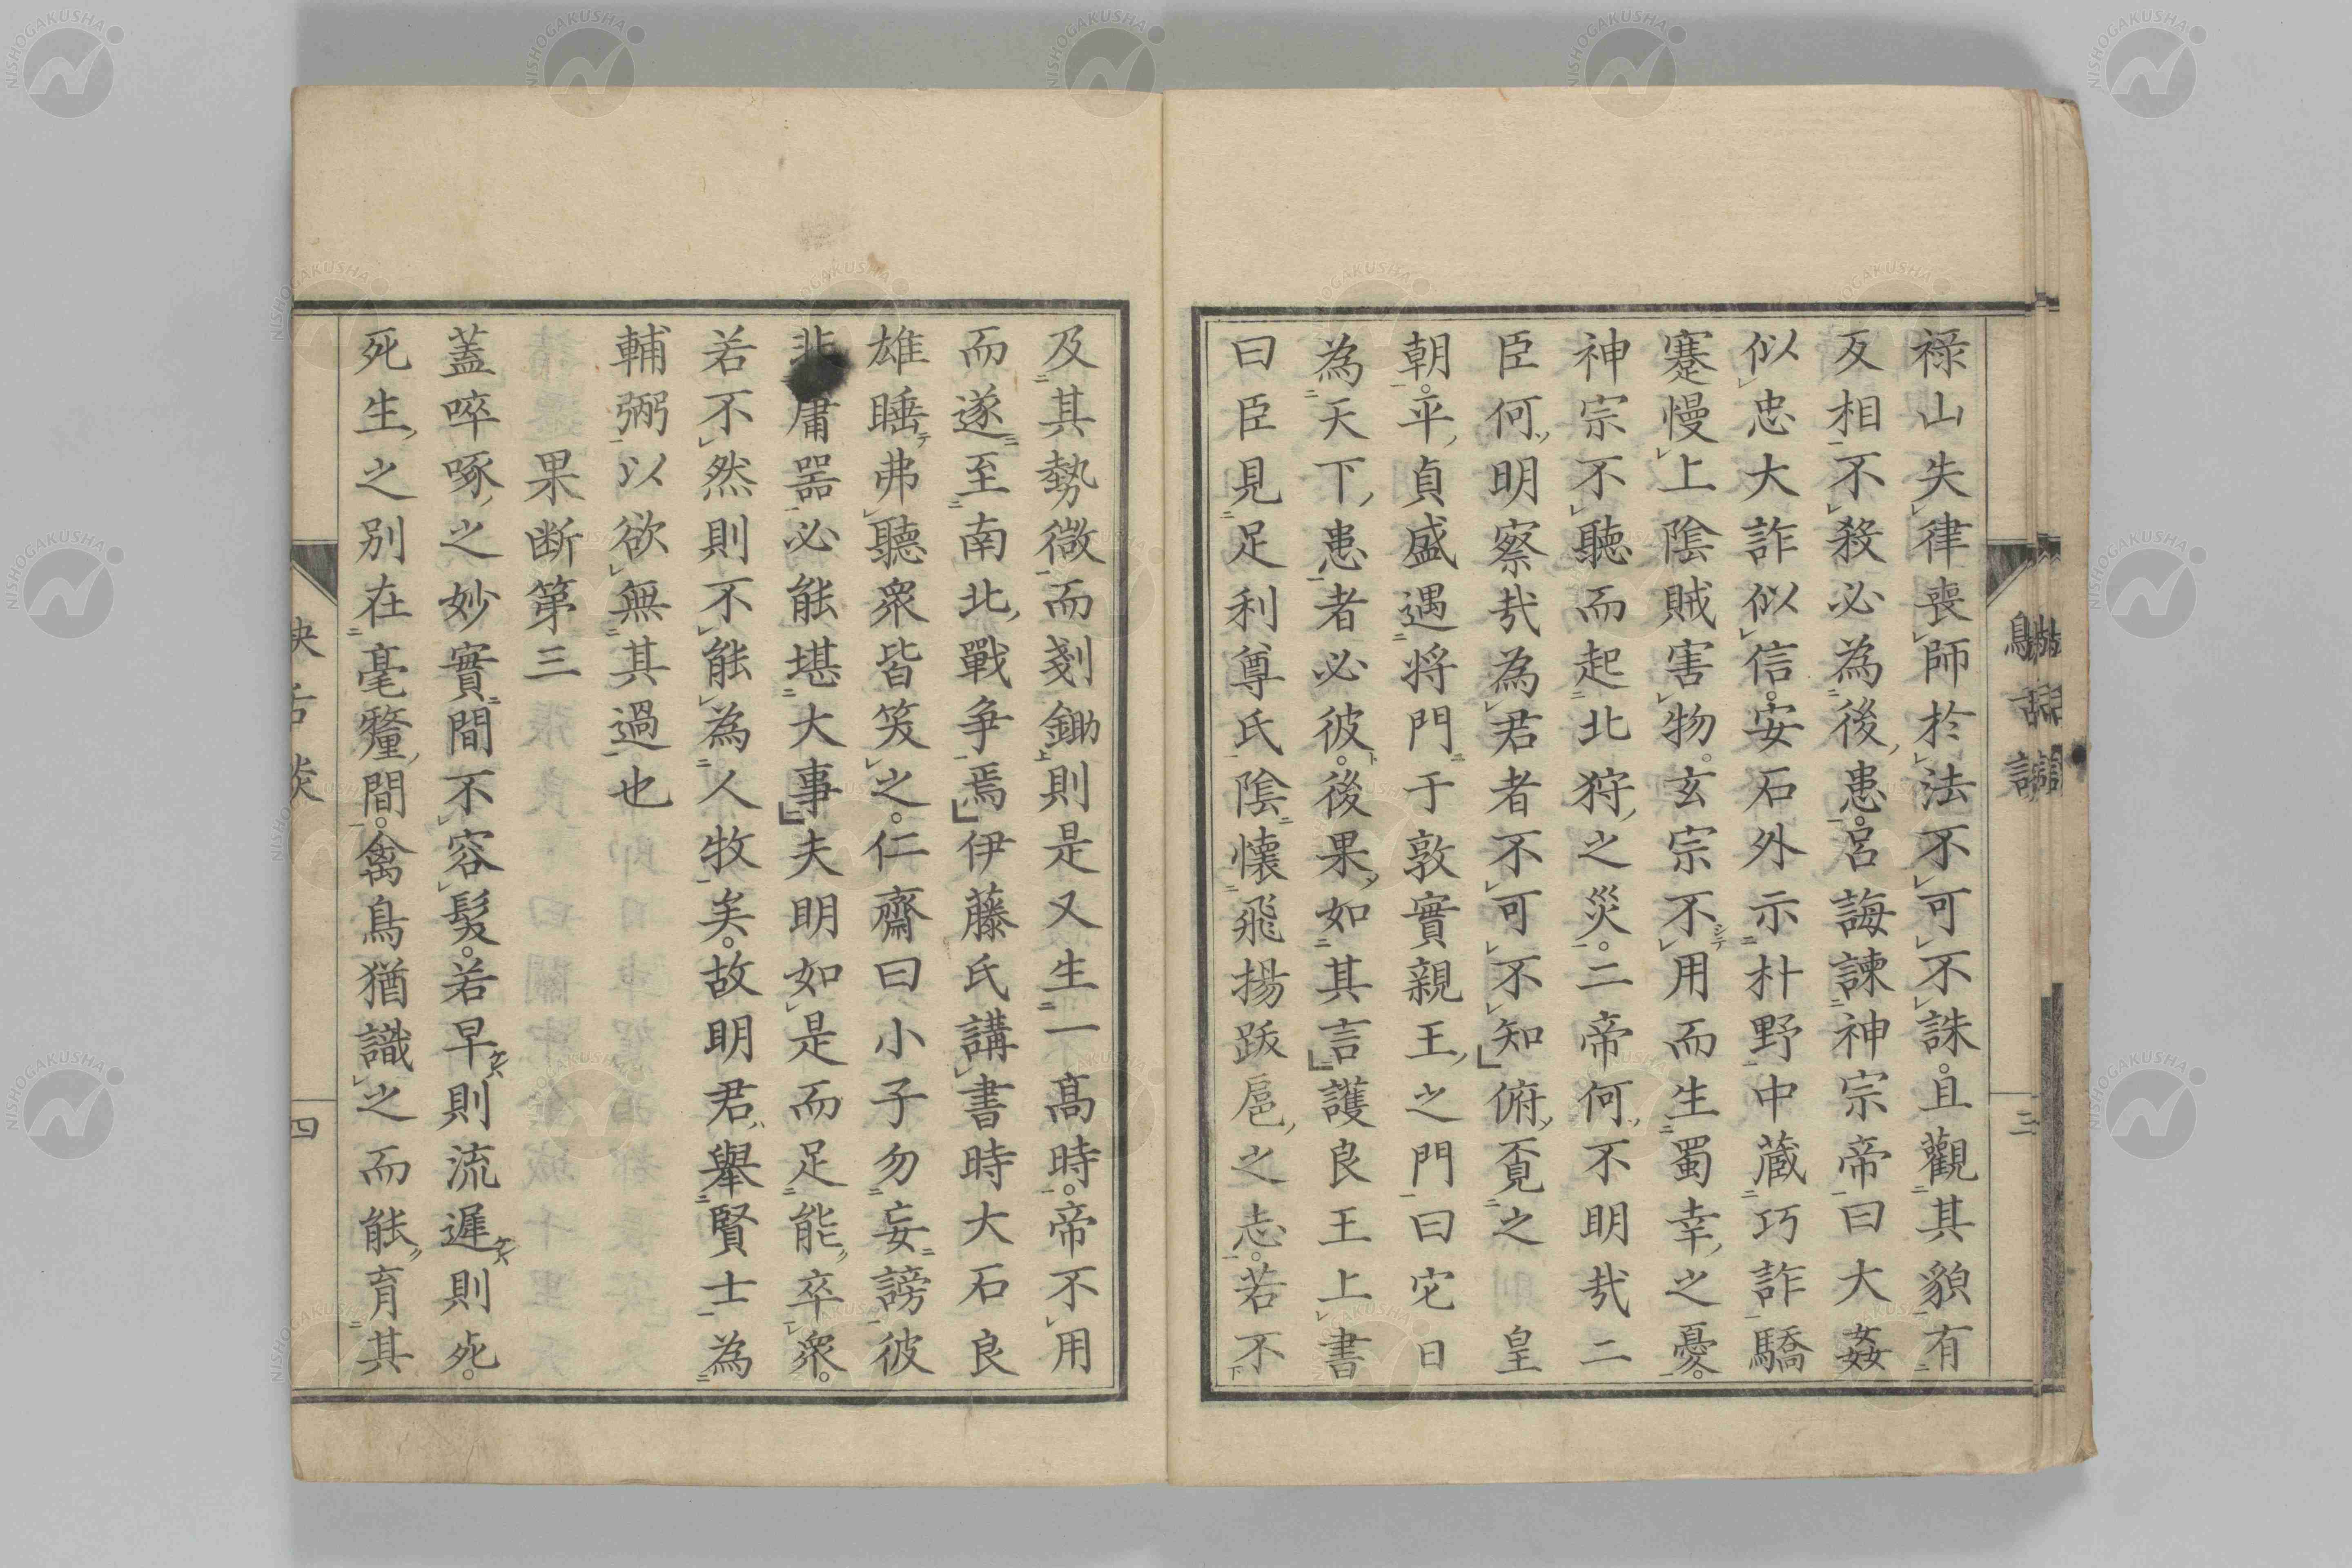 禄山失律喪師於法不可不誅。且觀其貌有
反相不殺必為後患。呂誨諫神宗帝曰大姦
似忠大詐似信。安石外示朴野中蔵巧詐驕
蹇慢上陰賊害物。玄宗不用而生蜀幸之憂。
神宗不聽而起北狩之災。二帝何不明哉二
臣何明察哉為君者不可不知俯覔之 皇
朝。平貞盛遇将門于敦實親王之門曰它日
為天下患者必彼。後果如其言護良王上書
曰臣見足利尊氏陰懷飛揚跋扈之志。若不
三
及其勢微而剗鋤則是又生一高時。帝不用
而遂至南北戰争焉伊藤氏講書時大石良
雄睡弗聽衆皆笑之。仁齋曰小子勿妄謗彼
非庸器必能堪大事夫明如是而足能卒衆。
若不然則不能為人牧矣。故明君舉賢士為
輔弼以欲無其過也
果断第三
蓋啐啄之妙實間不容髮。若早則流遲則死。
死生之別在毫釐間。禽鳥猶識之而能育其
四
NISHOGAKUSHA